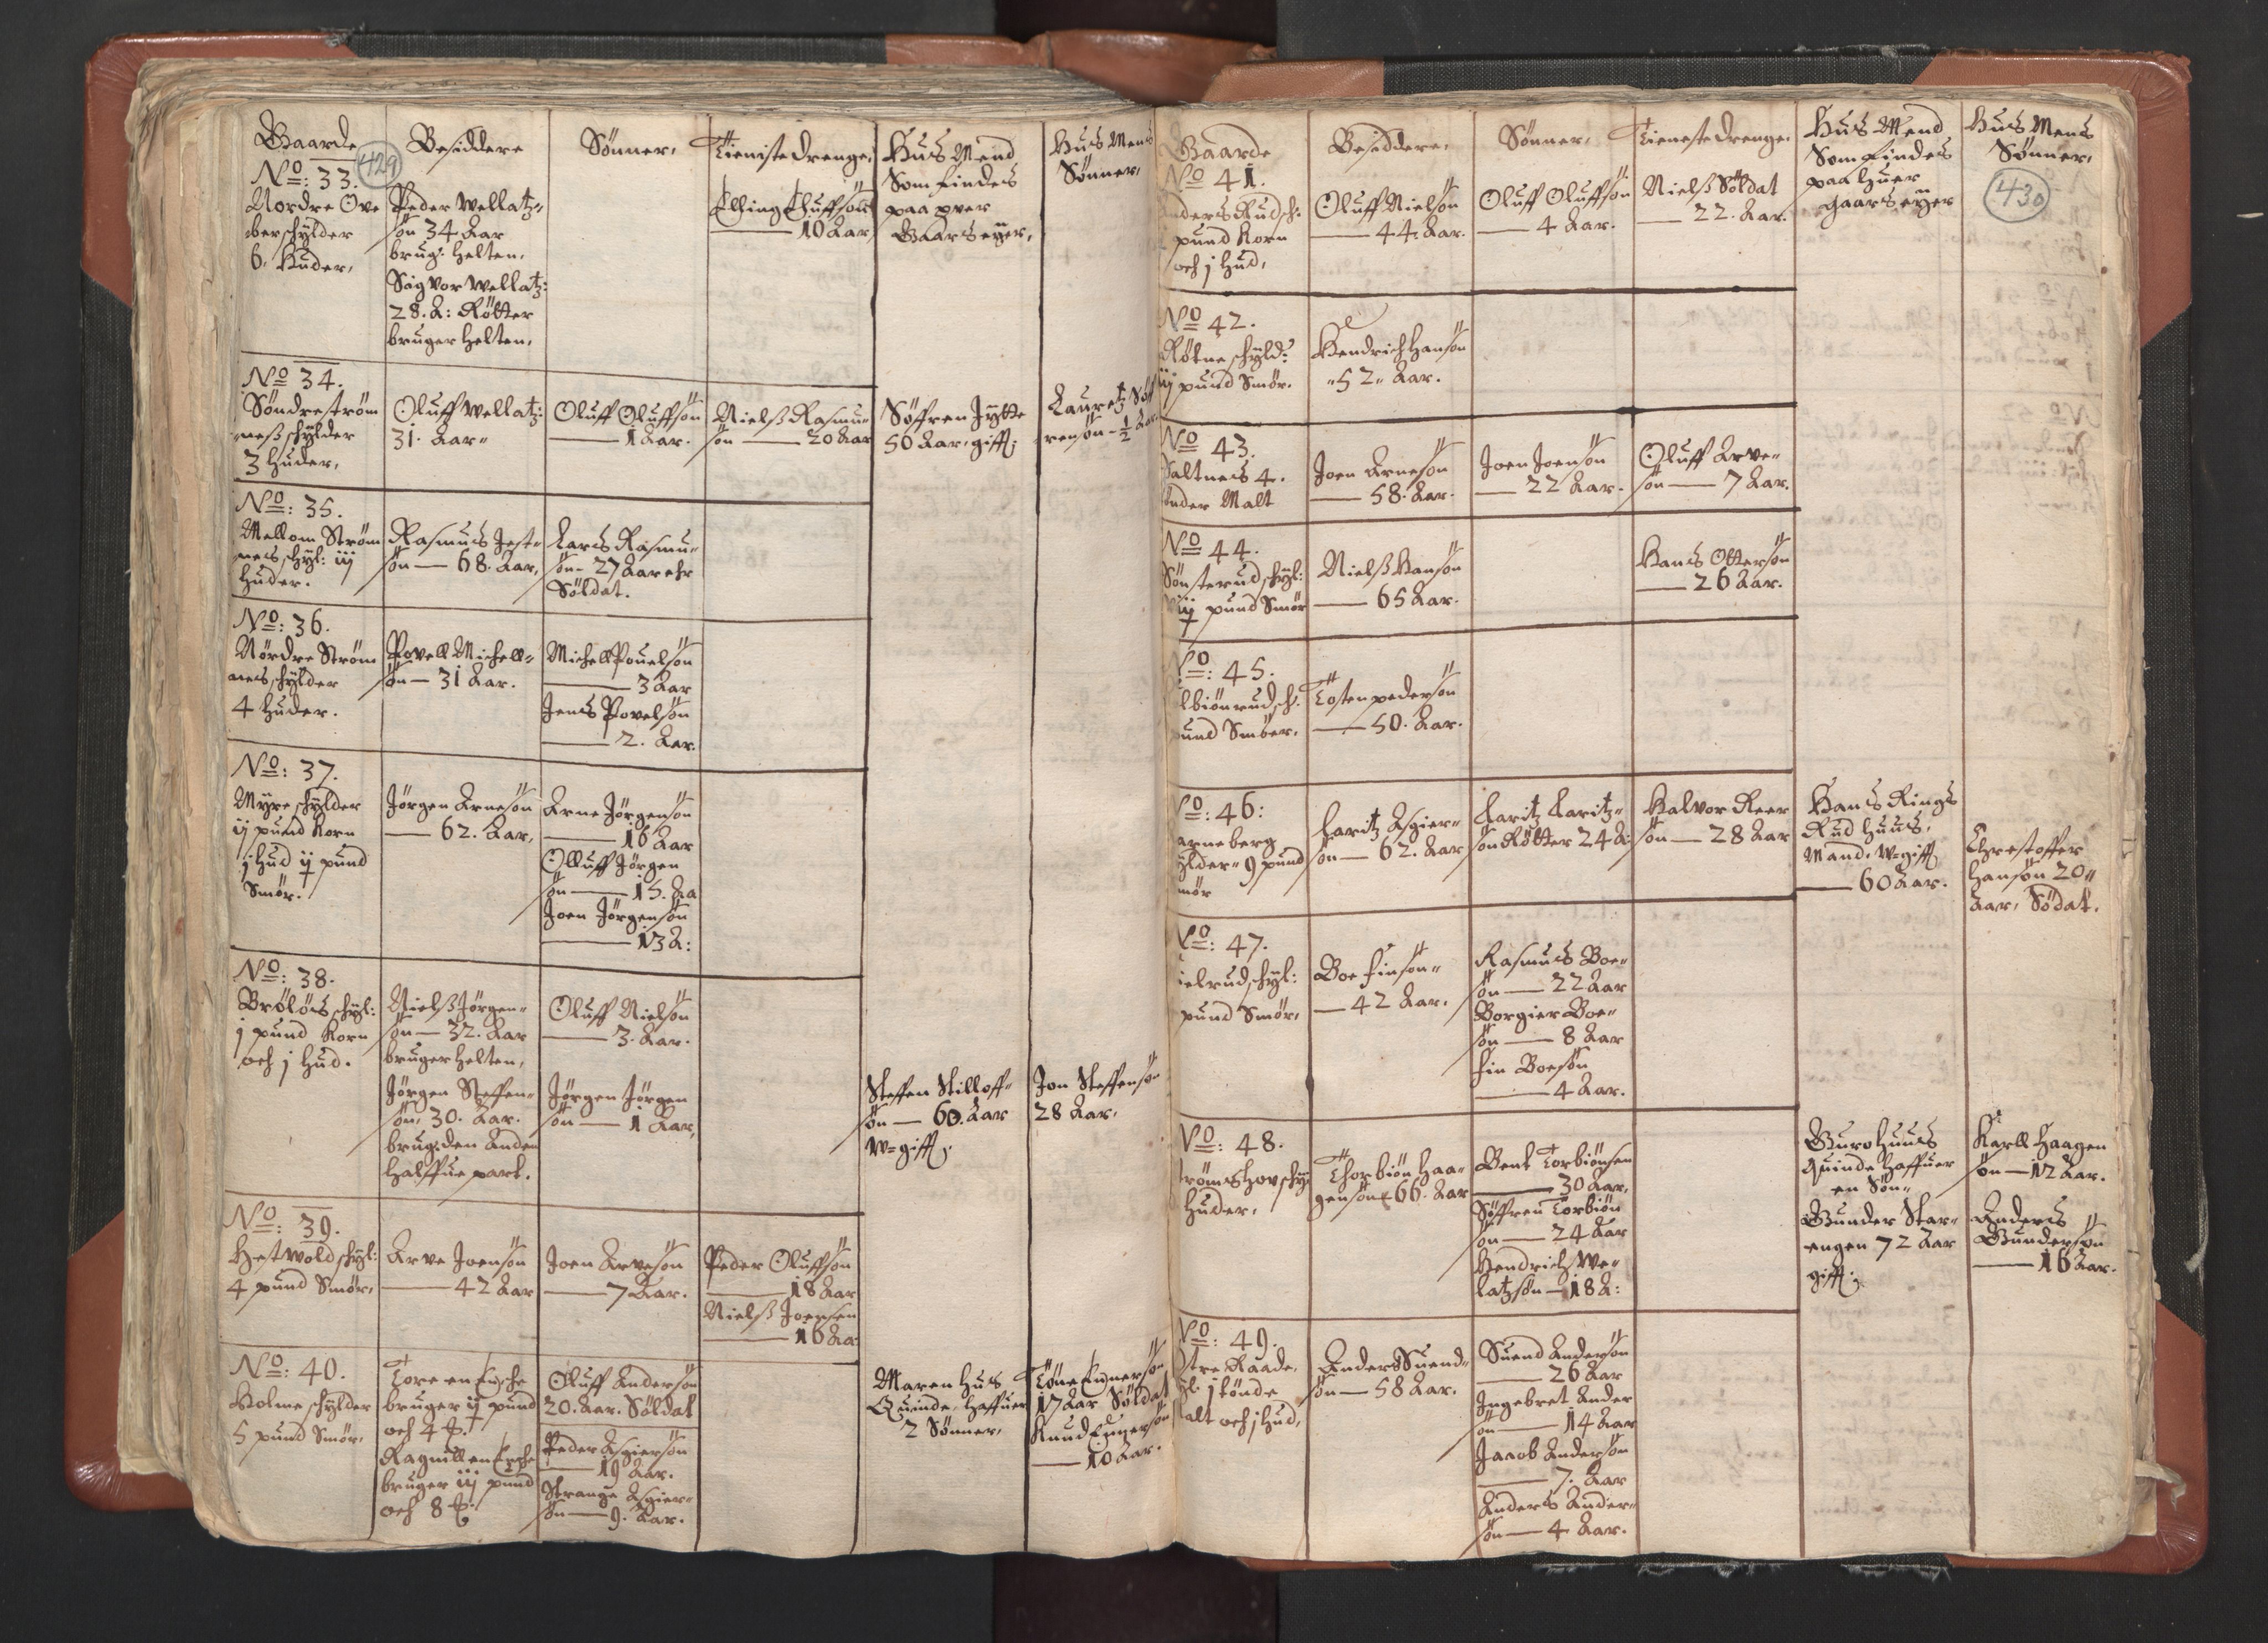 429
Gaarde
Besiddere
Sønner,
Tienistedrenge,
Huus Mend
Som findes
paa hver
Gaards eyer,
Huus Mens
Sønner,
No: 33.
Nordre Øve
berschylder
6. Huder,
Peder Wellatz-
søn 34 Aar
brug: helten,
Sigvor Wellatz:
28. A: Røtter
bruger helten,
Elling Eluffsøn
10 Aar
No 34.
Søndreström
neß schylder
3 huder,
Oluff Wellatz:
31. Aar
Oluff Oluffsøn
1 Aar.
Nielß Rasmu-
søn 20 Aar
Søffren Jytte
50 Aar, gifft,
Lauretz Søff
rensøn - ½ Aar
No: 35.
Mellom Ström
nes schyl: iij
huder.
Rasmus Jest-
søn 68. Aar,
Lars Rasmu-
søn 27 Aar ehr
Søldat.
No: 36.
Nørdre Ström
nes schylder
4 huder.
Povell Michell-
søn 31 Aar.
Michell Pouelsøn
3 Aar
Jens Povelsøn
2. Aar.
No: 37.
Myre schylder
ij pund Korn
j hud ij pund
Smør.
Jørgen Arnesøn
62. Aar,
Arne Jørgensøn
16 Aar
Olluff Jørgen
søn 15. Aa
Joen Jørgensøn
13 A:
No: 38.
Brøløs schyl:
j pund Korn
och j hud.
Nielß Jørgen-
søn 32. Aar
bruger helten,
Jørgen Steffen-
søn, 30. Aar.
brug: den Anden
halffue part.
Oluff Nielsøn
3. Aar.
Jørgen Jørgen
søn 1 Aar,
Steffen Stilloff-
søn 60. Aar
W-gifft,
Jon Steffensøn
28 Aar,
No: 39.
Hetwold schyl:
4 pund Smør,
Arve Joensøn
42 Aar
Joen Arvesøn
7 Aar.
Peder Oluffsøn
18 Aar
Nielß Joensen
16 Aa
No: 40.
Holme schylder
5 pund Smør,
Tore en Enche
bruger ij pund
och 4
Ragnill en Enche
bruger iij pund
och 8
Oluff Andersøn
20. Aar. Søldat
Peder Asgiersøn
19 Aar.
Strange Asgier-
søn 9. Aar.
Maren Hus
Quinde, haffuer
2 Sønner,
Töne Enersøn
17 Aar Søldat
Knud Enersøn
10 Aar.
430
Gaarde
Besiddere,
Sønner,
Tienestedrenge,
Hus Mend
Som findes
paa huer
Gaards eyer
Huus Mens
Sønner,
No 41.
Anders Rud sch:
pund Korn
och j hud,
Oluff Nielsøn
44. Aar.
Oluff Oluffsøn
4 Aar.
Nielß Søldat
22. Aar.
No 42.
Røtne schyld:
iij pund Smør.
Hendrich Hansøn
52 Aar.
No 43.
Saltnes 4.
tønder Malt
Joen Arnesøn
58. Aar.
Joen Joensøn
22 Aar.
Oluff Arve-
søn 7 Aar.
No 44.
Sønsterud schyl:
iij pund Smør
Nielß Hansøn
65 Aar.
Hans Ottersøn
26 Aar.
No: 45.
lbiönrud sch:
pund Smøer,
Tosten pedersøn
50. Aar.
No: 46:
arneberg
ylder 9 pund
mør
Laritz Asgier-
søn 62. Aar
Laritz Laritz-
søn Røtter 24 A:
Halvor Reer
søn 28 Aar
Hans Rings
Rud huus,
Mand, W-gifft
60 Aar.
Chrestoffer
Hansøn 20
Aar, Södat.
No: 47.
ielrud schyl:
pund Smør,
Boe finsøn
42 Aar,
Rasmus Boe-
søn 22 Aar
Borgier Boe-
søn 8 Aar
fin Boesøn
4 Aar.
No: 48.
trömshov schy:
huder,
Thorbiön Haa-
gensøn 66. Aar
Bent Torbiönsen
30 Aar,
Søffren Torbiön
søn 24 Aar
Hendrich We-
latzsøn 18 A:
Guro huus
quinde haffuer
en Søn
Gunder Star-
engen 72 Aar
gifft,
Karll Haagen
søn 12 Aar.
Anders
Gundersøn
16 Aar.
No: 49.
stre Raade,
yl: j tønde
alt och j hud,
Anders Suend-
søn 58 Aar.
Suend Andersøn
26 Aar
Ingebret Ander
søn 14 Aar
Jacob Andersøn
7. Aar
Anders Ander-
søn 4 Aar.